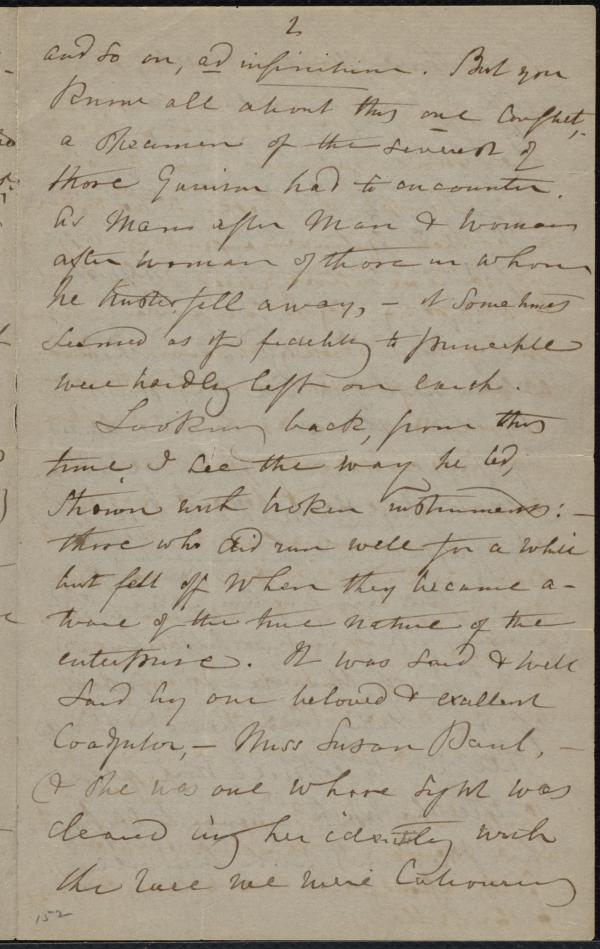 2
and so on, ad infinitum. But you
know all about this one conflict,-
a specimen of the severest of
those Garrison had to encounter.
As Man after Man & Woman
after woman of those in whom
he trusted fell away, - it sometimes
seemed as if fidelity to principle
were hardly left on earth.
Looking back, from this
time I see the way he led,
strewn with broken instruments: -
those who did run well for a while
but fell off when they became a-
ware of the true nature of the
enterprise. It was said & well
said by our beloved & excellent
Coadjutor, - Miss Susan Paul, -
(& she was one whose sight was
cleared by her identity with
the race we were labouring
152